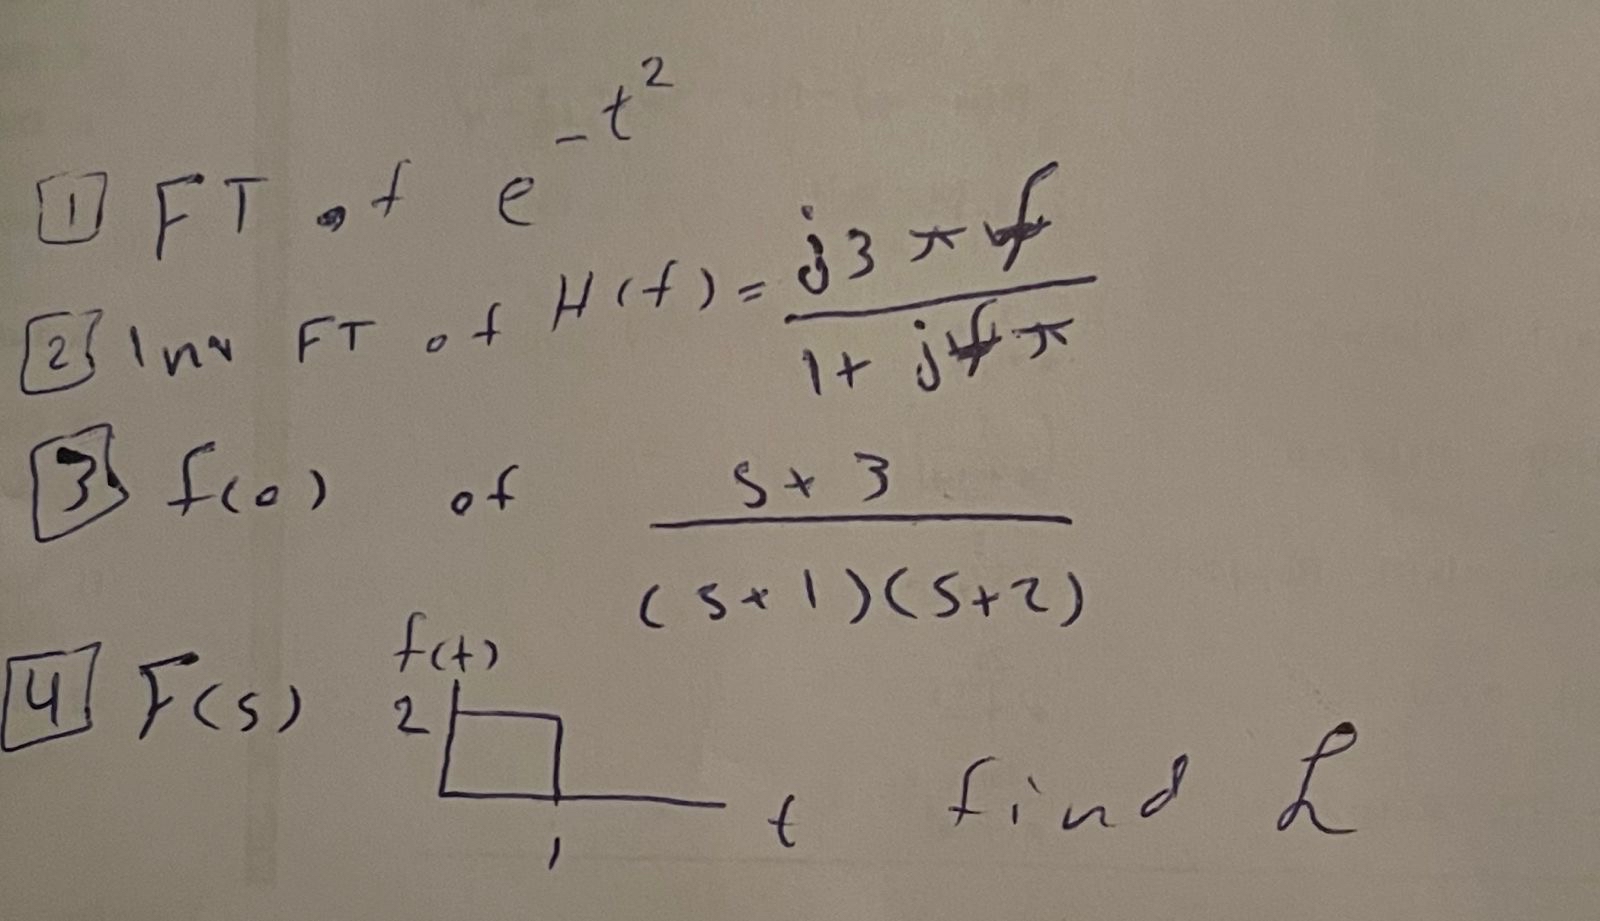 1 FT of e^-t^2
2 Inv FT of H(f) = j3πf / 1 + jfπ
3 f(0) of s+3 / (s+1)(s+2)
4 F(s) f(t) 2 1 t find ℒ